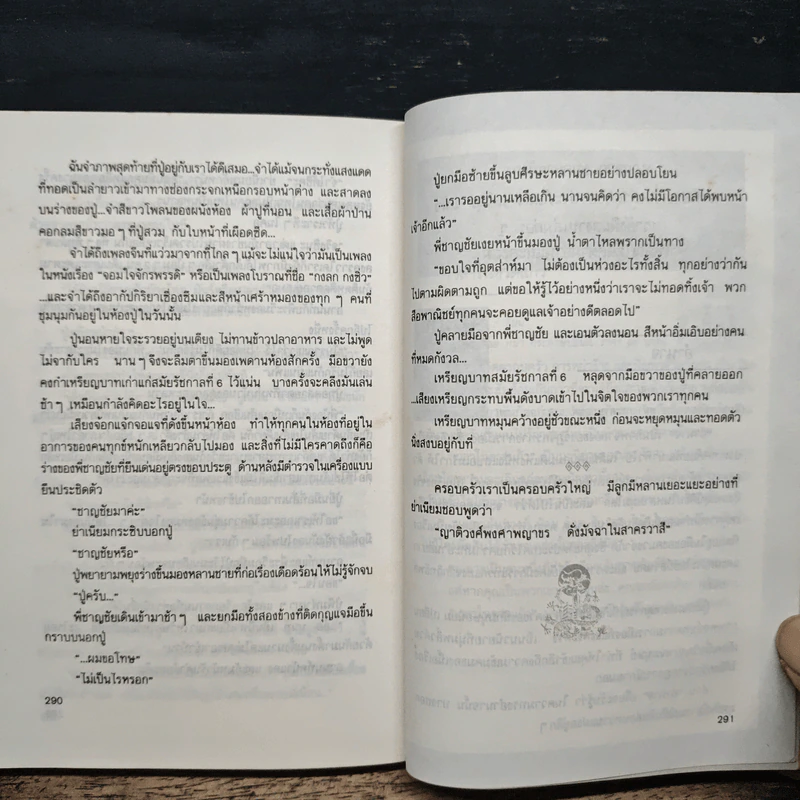 ฉันจำภาพสุดท้ายที่ปู่อยู่กับเราได้ดีเสมอ...จำได้แม้จนกระทั่งแสงแดด
ที่ทอดเป็นลำยาวเข้ามาทางช่องกระจกเหนือกรอบหน้าต่าง และสาดลง
บนร่างของปู่...จำสีขาวโพลนของผนังห้อง ผ้าปูที่นอน และเสื้อผ้าป่าน
คอกลมสีขาวมอๆ ที่ปู่สวม กับใบหน้าที่เผือดซีด...
จำได้ถึงเพลงจีนที่แว่วมาจากที่ไกลๆ แม้จะไม่แน่ใจว่ามันเป็นเพลง
ในหนังเรื่อง “จอมใจจักรพรรดิ” หรือเป็นเพลงโบราณที่ชื่อ “กงลก กงชิว”
...และจำได้ถึงอากัปกิริยาเชื่องซึมและสีหน้าเศร้าหมองของทุก ๆ คนที่
ชุมนุมกันอยู่ในห้องปู่ในวันนั้น
ปู่นอนหายใจระรวยอยู่บนเตียง ไม่ทานข้าวปลาอาหาร และไม่พูด
ไม่จากับใคร นาน ๆ จึงจะลืมตาขึ้นมองเพดานห้องสักครั้ง มือขวายัง
คงกำเหรียญบาทเก่าแก่สมัยรัชกาลที่ 6 ไว้แน่น บางครั้งจะคลึงมันเล่น
ช้าๆ เหมือนกำลังคิดอะไรอยู่ในใจ...
เสียงจ้อกแจ้กจอแจที่ดังขึ้นหน้าห้อง ทำให้ทุกคนในห้องที่อยู่ใน
อาการของคนทุกข์หนักเหลียวกลับไปมอง และสิ่งที่ไม่มีใครคาดถึงก็คือ
ร่างของพี่ชาญชัยที่ยืนเด่นอยู่ตรงขอบประตู ด้านหลังมีตำรวจในเครื่องแบบ
ยืนประชิดตัว
“ชาญชัยมาค่ะ”
ย่าเนียมกระซิบบอกปู่
“ชาญชัยหรือ”
ปู่พยายามพยุงร่างขึ้นมองหลานชายที่ก่อเรื่องเดือดร้อนให้ไม่รู้จักจบ
“ปู่ครับ...”
พี่ชาญชัยเดินเข้ามาช้าๆ และยกมือทั้งสองข้างที่ติดกุญแจมือขึ้น
กราบบนอกปู่
“...ผมขอโทษ”
“ไม่เป็นไรหรอก”
290
ปู่ยกมือซ้ายขึ้นลูบศีรษะหลานชายอย่างปลอบโยน
“...เรารออยู่นานเหลือเกิน นานจนคิดว่า คงไม่มีโอกาสได้พบหน้า
เจ้าอีกแล้ว”
พี่ชาญชัยเงยหน้าขึ้นมองปู่ น้ำตาไหลพรากเป็นทาง
“ขอบใจที่อุตส่าห์มา ไม่ต้องเป็นห่วงอะไรทั้งสิ้น ทุกอย่างว่ากัน
ไปตามผิดตามถูก แต่ขอให้รู้ไว้อย่างหนึ่งว่าเราจะไม่ทอดทิ้งเจ้า พวก
สือพาณิชย์ทุกคนจะคอยดูแลเจ้าอย่างดีตลอดไป”
ปู่คลายมือจากพี่ชาญชัย และเอนตัวลงนอน สีหน้าอิ่มเอิบอย่างคน
ที่หมดกังวล...
เหรียญบาทสมัยรัชกาลที่ 6 หลุดจากมือขวาของปู่ที่คลายออก
...เสียงเหรียญกระทบพื้นดังบาดเข้าไปในจิตใจของพวกเราทุกคน
เหรียญบาทหมุนคว้างอยู่ชั่วขณะหนึ่ง ก่อนจะหยุดหมุนและทอดตัว
นิ่งสงบอยู่กับที่
ครอบครัวเราเป็นครอบครัวใหญ่ มีลูกมีหลานเยอะแยะอย่างที่
ย่าเนียมชอบพูดว่า
“ญาติวงศ์พงศาพญาขร ดั่งมัจฉาในสาครวาสี”
291